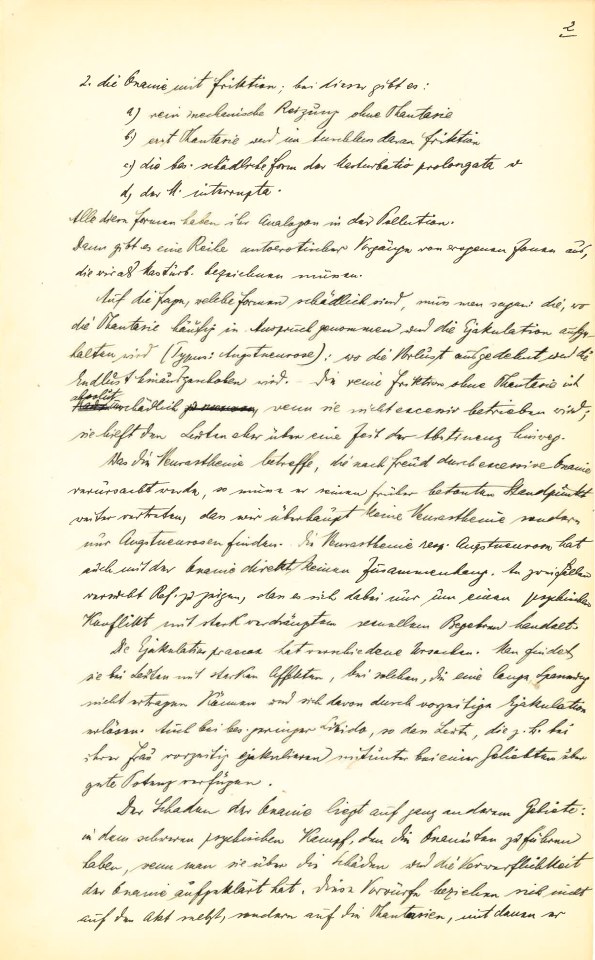 2
2. die Onanie mit Friktion; bei dieser gibt es:
a) rein mechanische Reizung ohne Phantasie
b) erst Phantasie und im Anschluss daran Friktion
c) die bes. schädliche Form der Masturbatio prolongata u
d) der M. interrupta.
Alle diese Formen haben ihr Analogon in der Pollution.
Dann gibt es eine Reihe autoerotischer Vorgänge von erogenen Zonen aus,
die wir als Masturb. bezeichnen müssen.
Auf die Frage, welche Formen schädlich sind, muss man sagen: die, wo
die Phantasie häufig in Anspruch genommen und die Ejakulation aufge-
halten wird (Typus: Angstneurose): wo die Vorlust ausgedehnt und die
Endlust hinausgeschoben wird. – Die reine Friktion ohne Phantasie ist
absolut unschädlich, wenn sie nicht excessiv betrieben wird;
sie hilft den Leuten aber über eine Zeit der Abstinenz hinweg.
Was die Neurasthenie betreffe, die nach Freud durch excessive Onanie
verursacht werde, so müsse er seinen früher betonten Standpunkt
weiter vertreten, dass wir überhaupt keine Neurasthenie sondern
nur Angstneurosen finden. Die Neurasthenie resp. Angstneurose hat
auch mit der Onanie direkt keinen Zusammenhang. An zwei Fällen
versucht Ref. zu zeigen, dass es sich dabei nur um einen psychischen
Konflikt mit stark verdrängtem sexuellem Begehren handelt.
Die Ejakulatio praecox hat verschiedene Ursachen. Man findet
sie bei Leuten mit starken Affekten, bei solchen, die eine lange Spannung
nicht ertragen können und sich davon durch vorzeitige Ejakulation
erlösen. Auch bei bes. geringer Libido, so den Leute, die z. B. bei
ihrer Frau vorzeitig ejakulieren mitunter bei einer Geliebten über
gute Potenz verfügen.
Der Schaden der Onanie liegt auf ganz anderem Gebiete:
in dem schweren psychischen Kampf, den die Onanisten zu führen
haben, wenn man sie über die Schäden und die Verwerflichkeit
der Onanie aufgeklärt hat. Diese Vorwürfe beziehen sich nicht
auf den Akt selbst, sondern auf die Phantasien, mit denen er